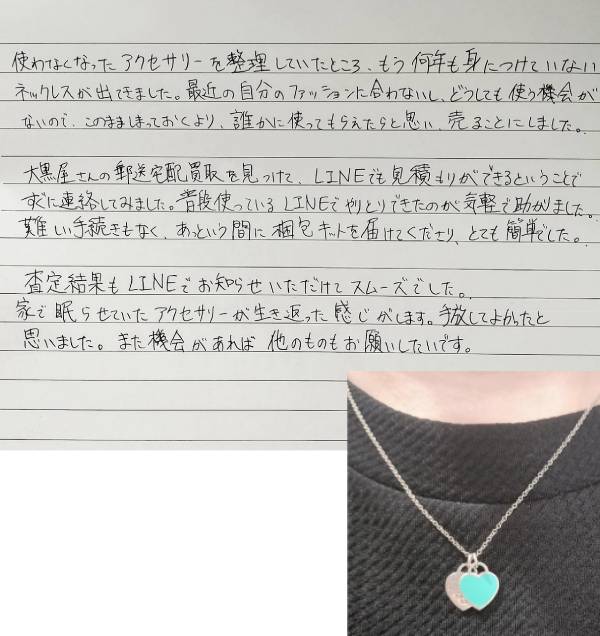 使わなくなったアクセサリーを整理していたところ、もう何年も身につけていない
ネックレスが出てきました。最近の自分のファッションに合わないし、どうしても使う機会が
ないので、このまましまっておくより、誰かに使ってもらえたらと思い、売ることにしました。
大黒屋さんの郵送宅配買取を見つけて、LINEでも見積もりができるということで
すぐに連絡してみました。普段使っているLINEでやりとりできたのが気軽で助かりました。
難しい手続きもなく、あっという間に梱包キットを届けてくださり、とても簡単でした。
査定結果もLINEでお知らせいただけてスムーズでした。
家で眠らせていたアクセサリーが生き返った感じがします。手放してよかったと
思いました。また機会があれば他のものもお願いしたいです。